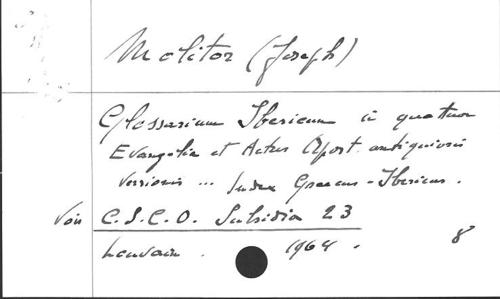 Molitor (Joseph)
Glossarium Ibericum in quattuor
Evangelia et Actus Apost. antiquioris
versionis ... Index Graecus-Ibericus.
Voir C.S.C.O. Subsidia 23
Louvain. 1964. 8